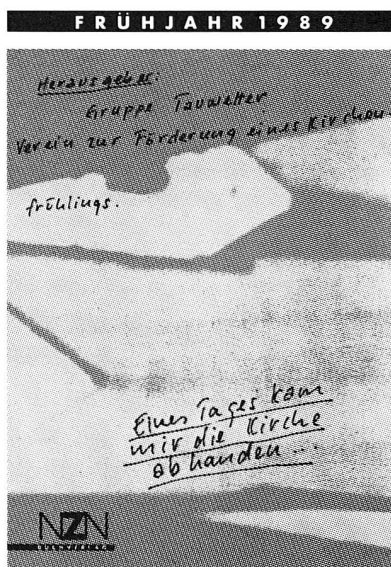 FRÜHJAHR 1989
Herausgeber:
Gruppe Tauwetter
Verein zur Förderung eines Kirchen-
frühlings.
Eines Tages kam
mir die Kirche
abhanden...
NZN
BUCHVERLAG